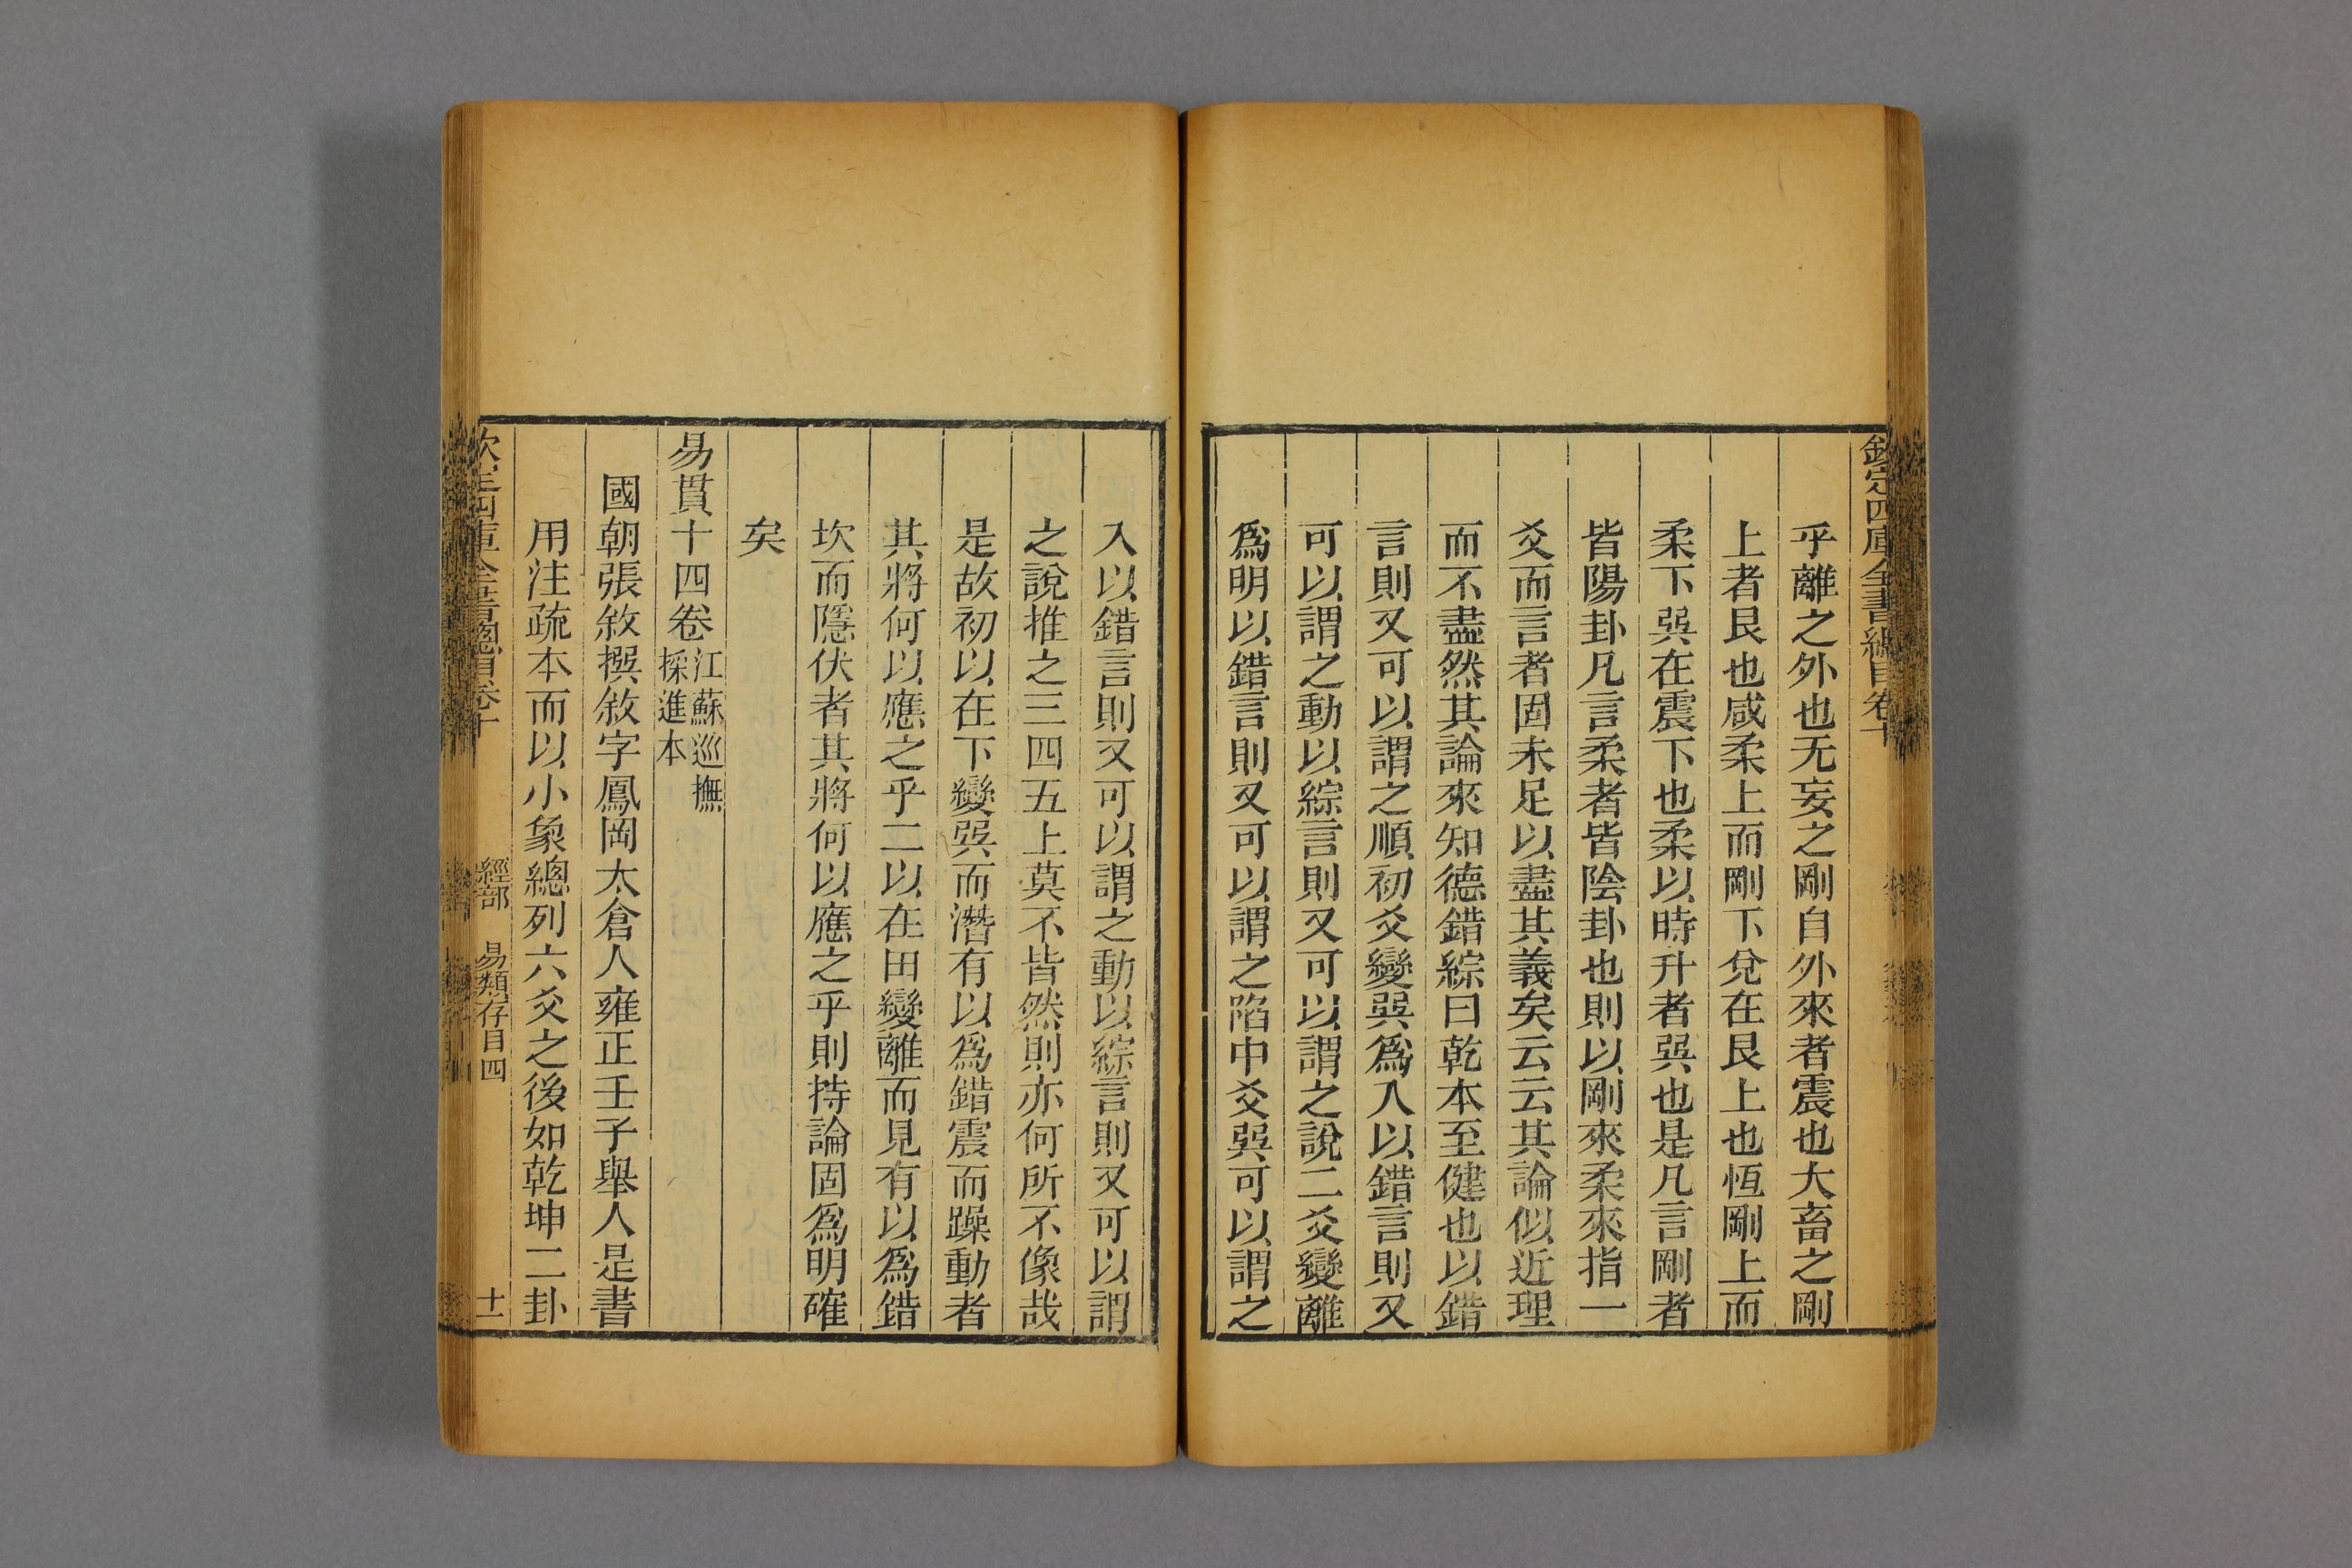 欽定四庫全書總目卷十
乎離之外也无妄之剛自外來者震也大畜之剛
上者艮也咸柔上而剛下兌在艮上也恆剛上而
柔下巽在震下也柔以時升者巽也是凡言剛者
皆陽卦凡言柔者皆陰卦也則以剛來柔來指一
爻而言者固未足以盡其義矣云云其論似近理
而不盡然其論來知德錯綜曰乾本至健也以錯
言則又可以謂之順初爻變巽爲入以錯言則又
可以謂之動以綜言則又可以謂之說二爻變離
爲明以錯言則又可以謂之陷中爻巽可以謂之
入以錯言則又可以謂之動以綜言則又可以謂
之說推之三四五上莫不皆然則亦何所不像哉
是故初以在下變巽而潛有以爲錯震而躁動者
其將何以應之乎二以在田變離而見有以爲錯
坎而隱伏者其將何以應之乎則持論固爲明確
矣
易貫十四卷江蘇巡撫
採進本
國朝張敘撰敘字鳳岡太倉人雍正壬子舉人是書
用注疏本而以小象總列六爻之後如乾坤二卦
欽定四庫全書總目卷十 經部 易類存目四 十一